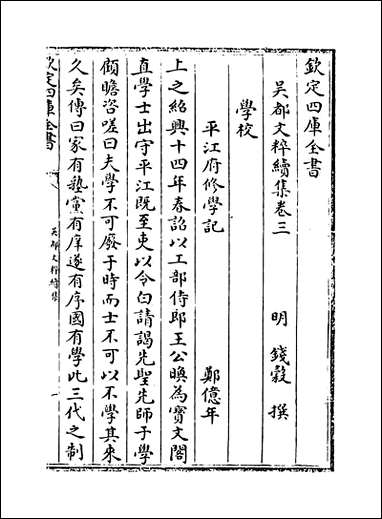 欽定四庫全書
吳都文粹續集卷三
明 錢穀 撰
學校
平江府修學記
鄭億年
上之紹興十四年春詔以工部侍郎王公㬇為寶文閣
直學士出守平江既至吏以令白請謁先聖先師于學
顧瞻咨嗟曰夫學不可廢于時而士不可以不學其來
久矣傳曰家有塾黨有庠遂有序國有學此三代之制
欽定四庫全書
吳都文粹續集